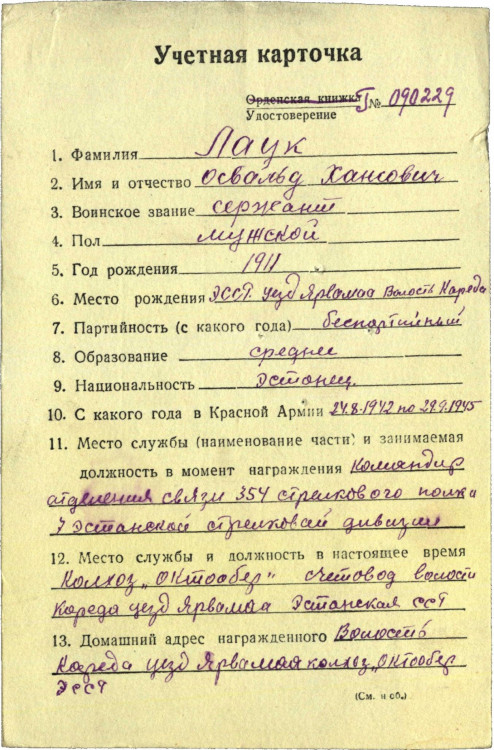 Учетная карточка
Орденская книжка № 090229
Удостоверение
1. Фамилия Лаук
2. Имя и отчество Освальд Хансович
3. Воинское звание сержант
4. Пол мужской
5. Год рождения 1911
6. Место рождения ЭССР. уезд Ярвамаа Волость Кареда
7. Партийность (с какого года) беспартийный
8. Образование среднее
9. Национальность Эстонец.
10. С какого года в Красной Армии 24.8.1942 по 29.9.1945
11. Место службы (наименование части) и занимаемая
должность в момент награждения Командир
отделения связи 354 стрелкового полка
7 Эстанской стрелковай дивизии
12. Место службы и должность в настоящее время
Колхоз „Октообер" счетовод волости
Кареда уезд Ярвамаа Эстанская ССР
13. Домашний адрес награжденного Волость
Кареда уезд Ярвамаа колхоз „Октообер
ЭССР
(См. н об.)